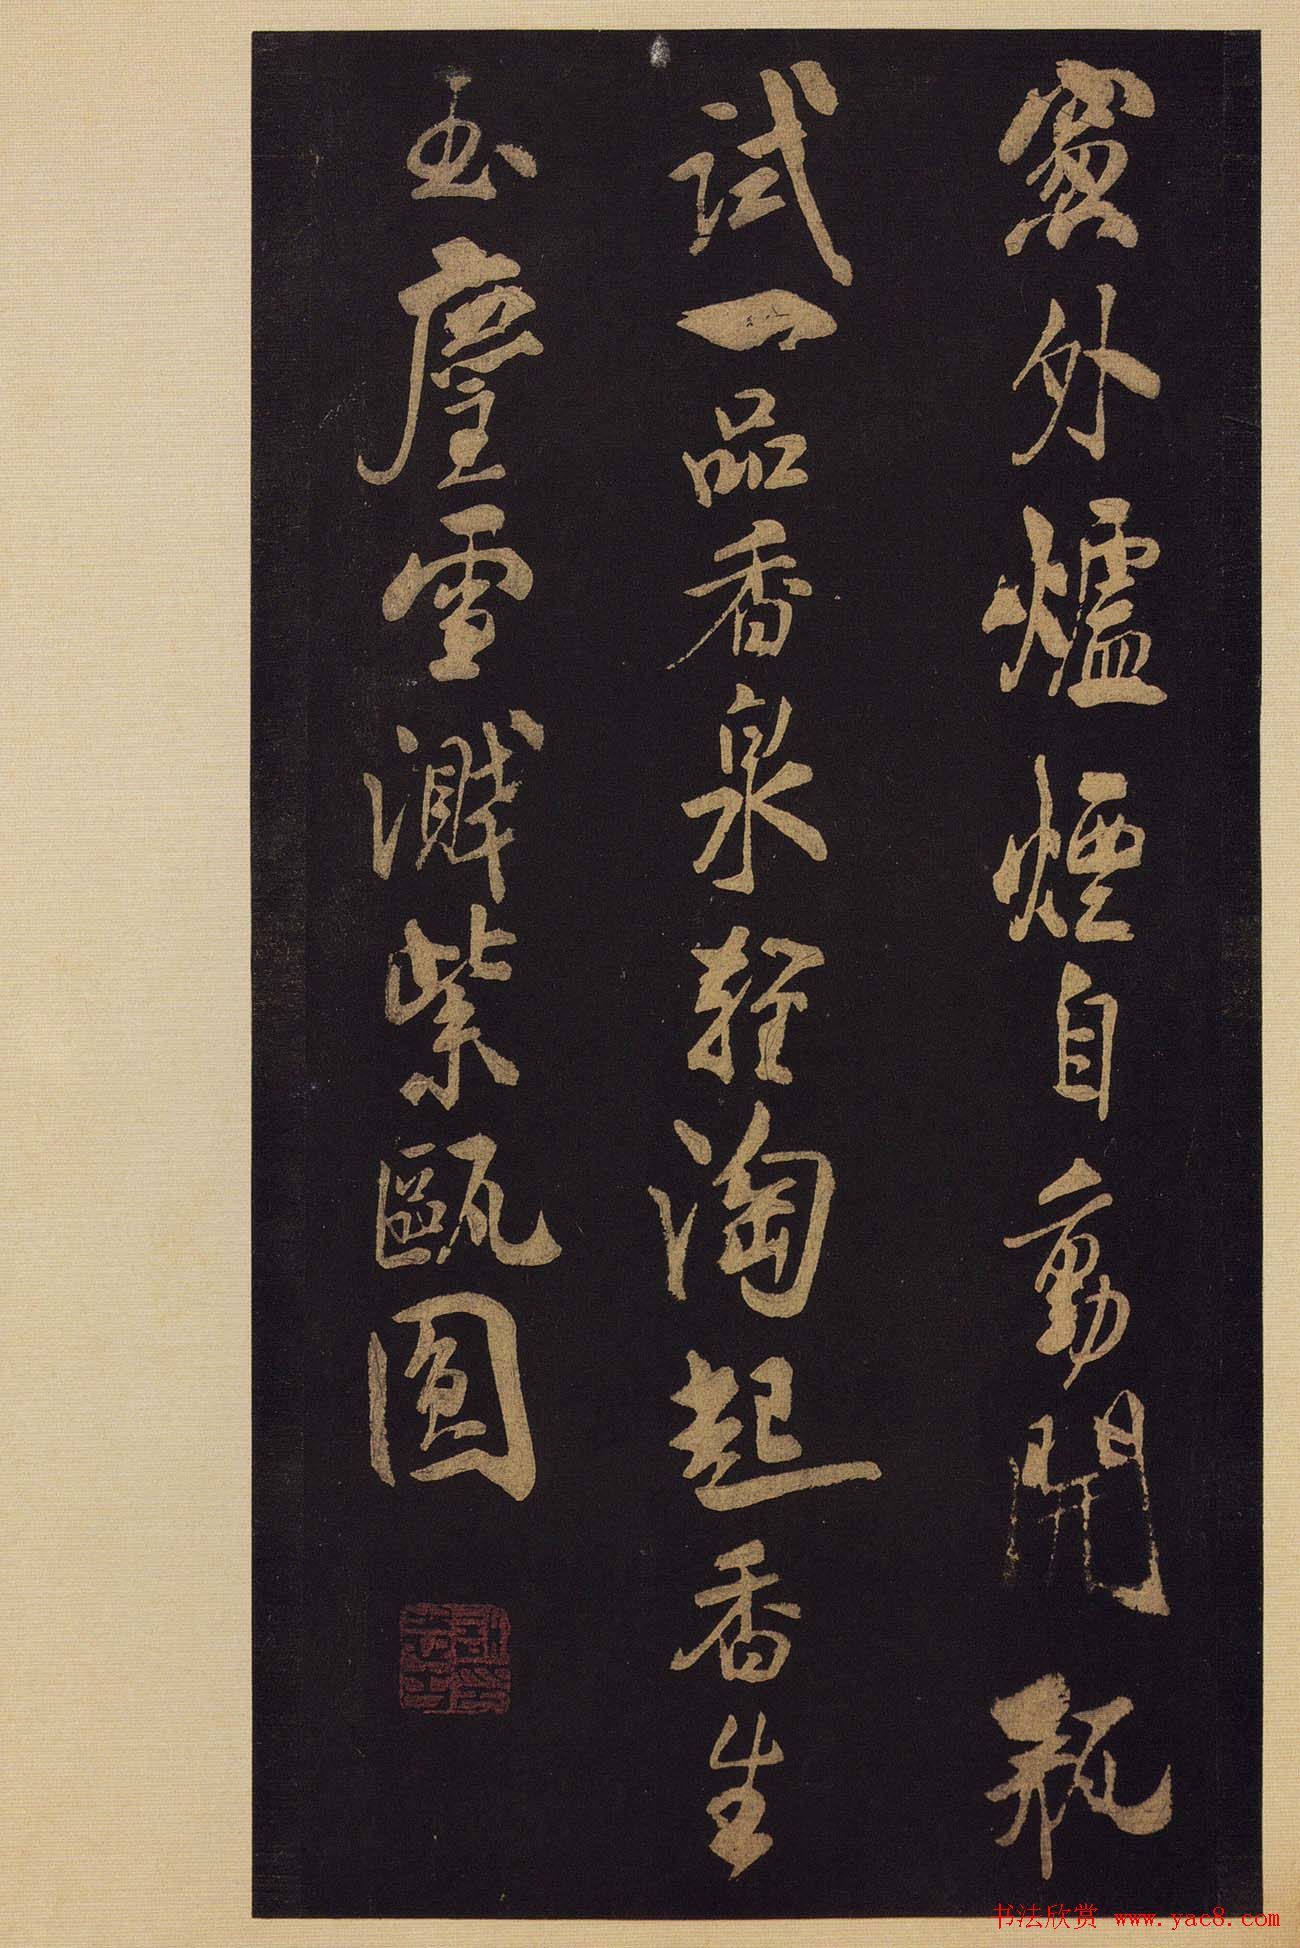 窻外爐煙自動開瓶
試一品香泉輕淘起香生
玉塵雪濺紫甌圓
书法欣赏 www.yac8.com